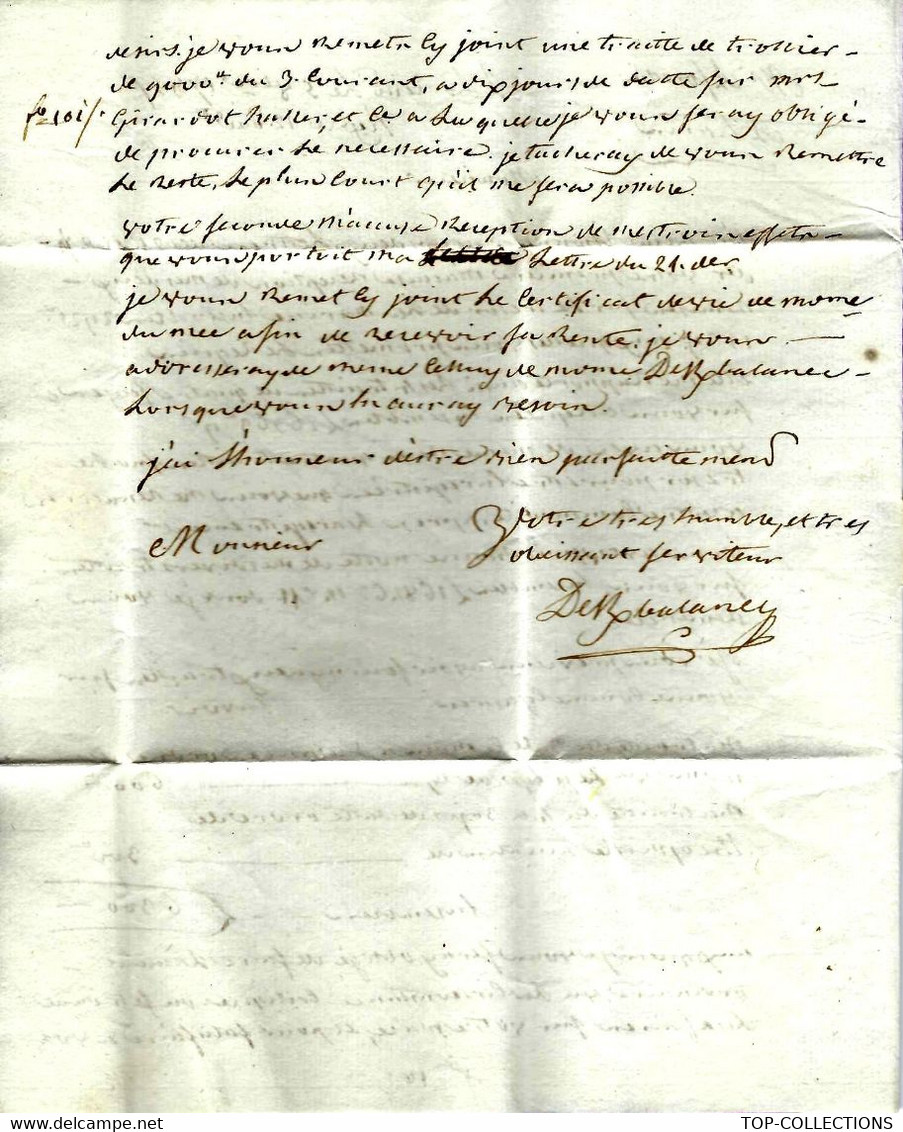 je vous Remets Cy joint une traitte de
de 9000 lt du 3. Courant, a dix jours de datte sur Mrs
fo 101/.
Girardot haller et Ce a Laquelle je vous seray obligé
de procurer Le necessaire. je tacheray de vous Remettre
Le Reste, Le plus Court qu'il me sera possible.
votre seconde m'accuse Reception de mes trois effets
que vous portoit ma Lettre du 21. der.
je vous Remet Cy joint Le Certificat de vie de
du Mée afin de Recevoir sa Rente. je vous
adresseray de meme Celluy de DeRbalanec
Lorsque vous en auray Besoin.
j'ai L'honneur d'estre bien parfaittement
Monsieur
Votre tres humble, et tres
obeissant serviteur
DeRbalanec
TOP-COLLECTIONS